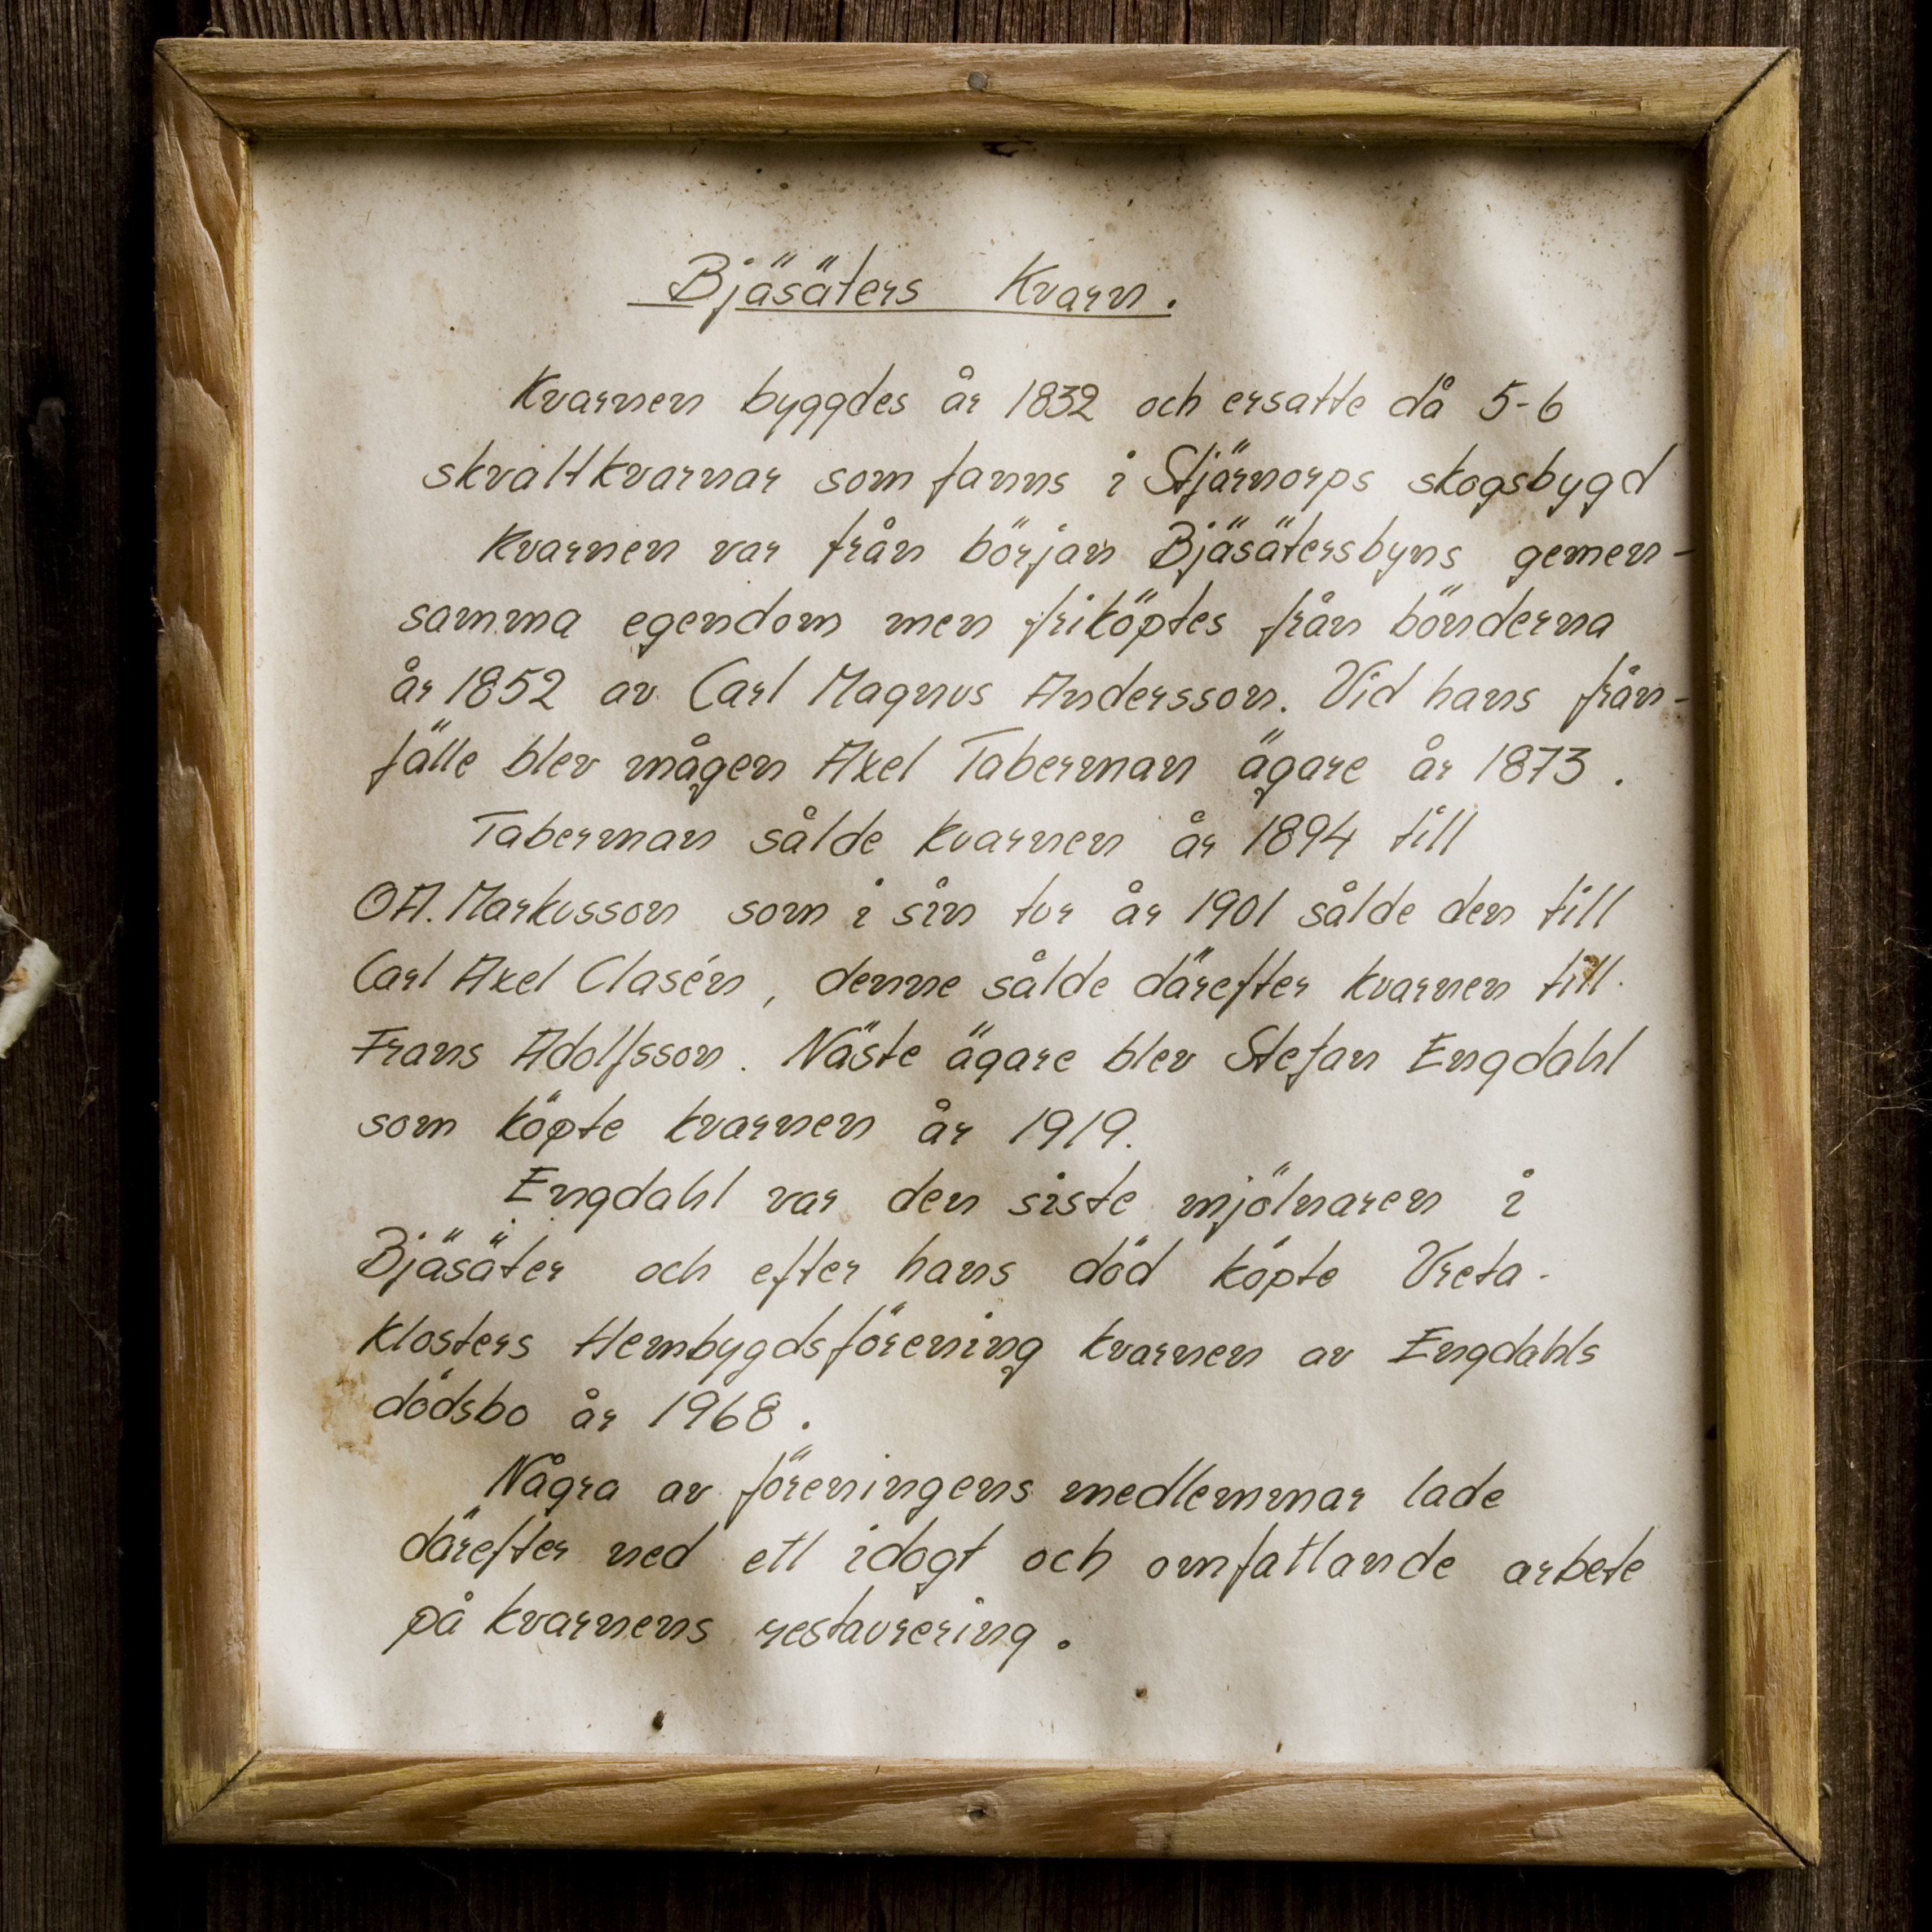 Bjäsäters Kvarn.
Kvarnen byggdes år 1832 och ersatte då 5-6
skvaltkvarnar som fanns i Stjärnorps skogsbygd
Kvarnen var från början Bjäsätersbyns gemen-
samma egendom men friköptes från bönderna
år 1852 av Carl Magnus Andersson. Vid hans från-
fälle blev mågen Axel Taberman ägare år 1873.
Taberman sålde kvarnen år 1894 till
OA. Markusson som i sin tur år 1901 sålde den till
Carl Axel Clasén, denne sålde därefter kvarnen till
Frans Adolfsson. Näste ägare blev Stefan Engdahl
som köpte kvarnen år 1919.
Engdahl var den siste mjölnaren i
Bjäsäter och efter hans död köpte Vreta-
Klosters Hembygdsförening kvarnen av Engdahls
dödsbo år 1968.
Några av föreningens medlemmar lade
därefter ned ett idogt och omfattande arbete
på kvarnens restaurering.